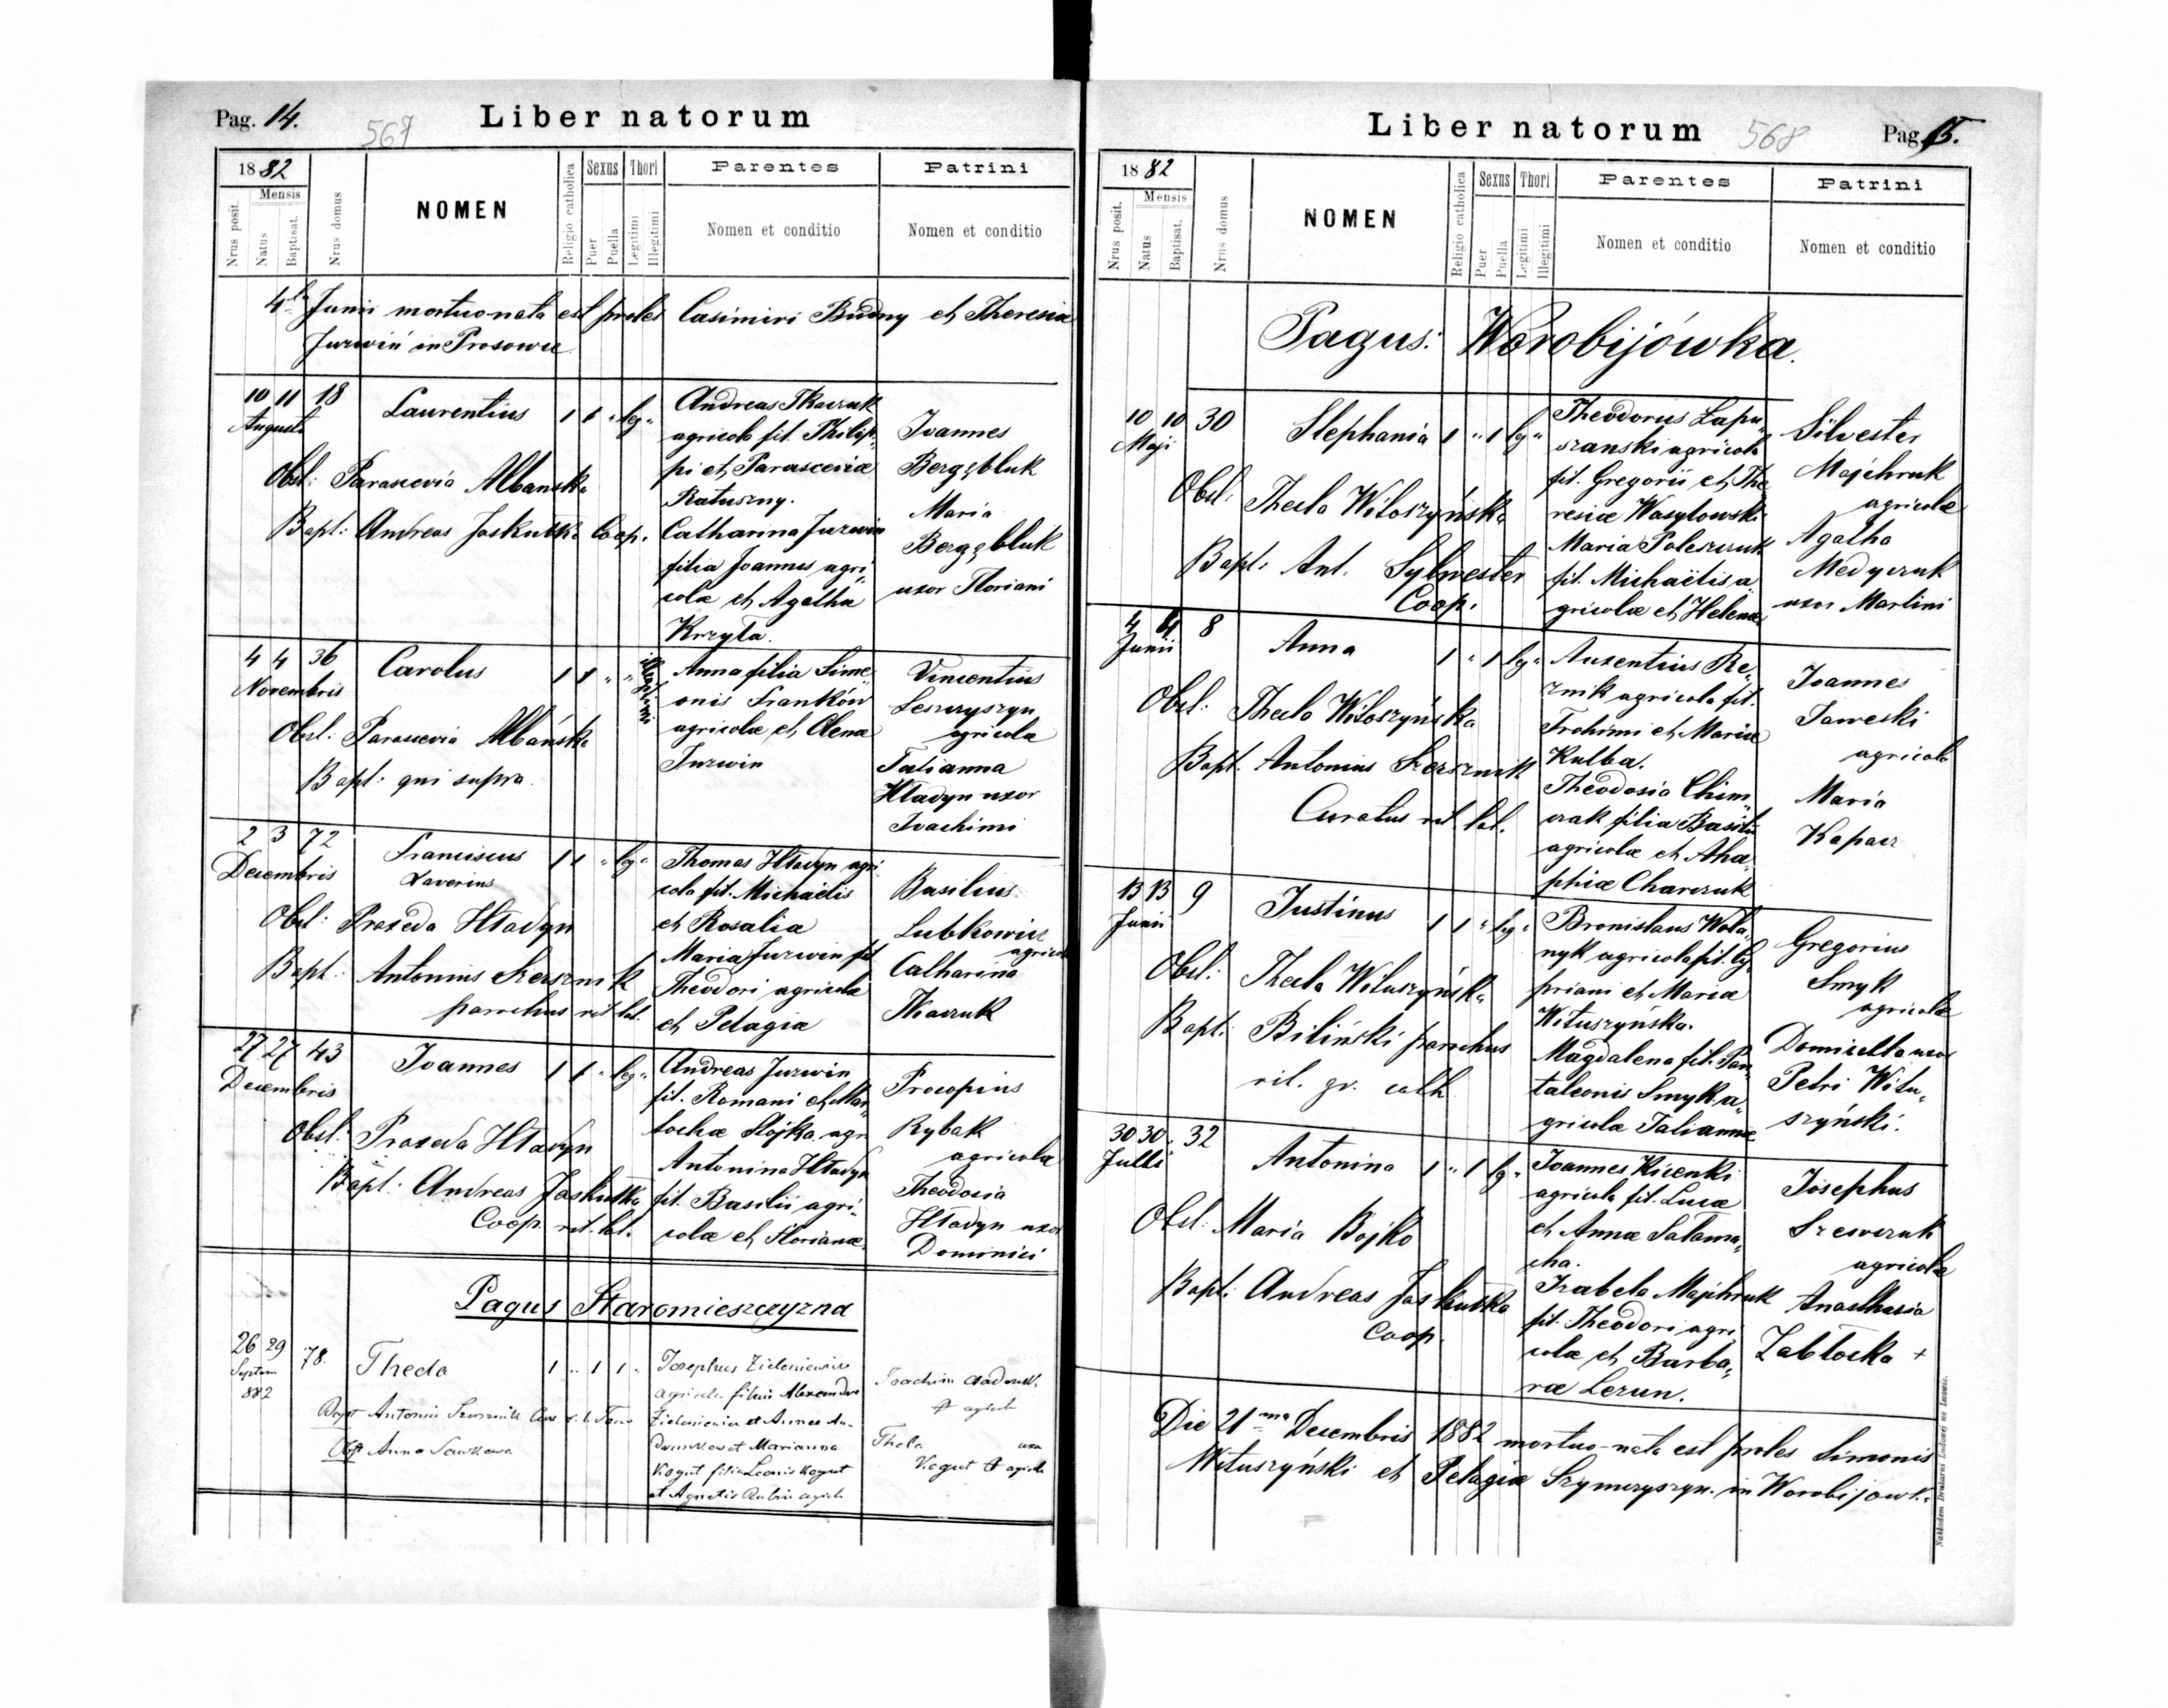 Pag. 14.
567
Liber natorum
1882
Mensis
Nrus posit.
Natus
Baptisat.
Nrus domus
NOMEN
Religio catholica
Sexus
Puer
Puella
Thori
Legitimi
Illegitimi
Parentes
Nomen et conditio
Patrini
Nomen et conditio
4ta Junii mortuo-nata est proles Casimiri Budny et Theresia
Jurwiń in Prosowce
10 11 18
Augusti
Laurentius 1 1 " leg "
Obst: Parascevia Albanska
Bapt: Andreas Jaskulka Coop.
Andreas Tkaczuk
agricola fil. Philip„
pi et Parasceviæ
Ratuszny.
Catharina Jurwin
filia Joannis agri„
colæ et Agathæ
Krzyta.
Joannes
Bergębluk
Maria
Bergębluk
uxor Floriani
4 4 36
Novembris
Carolus 1 1 " " illegitimi
Obst: Parascevia Albańska
Bapt: qui supra.
Anna filia Sime„
onis Franków
agricolæ et Olenæ
Jurwin
Vincentius
Leszczyszyn
agricola
Tatianna
Hładyn uxor
Joachimi
2 3 72
Decembris
Franciscus
Xaverius
1 1 " leg "
Obst: Praxeda Hładyn
Bapt: Antonius Szersznik
parochus rit. lat.
Thomas Hładyn agri„
cola fil. Michaëlis
et Rosalia
Maria Jurwin fil.
Theodori agricolæ
et Pelagiæ
Basilius
Lubkowicz
agricola
Catharina
Tkaczuk
27 27 43
Decembris
Joannes 1 1 " leg "
Obst: Praxeda Hładyn
Bapt: Andreas Jaskułka
Coop. rit. lat.
Andreas Jurwin
fil. Romani et Mar„
Stojka agr
Antonina Hładyn
fil. Basilii agri„
colæ et Florianæ
Procopius
Rybak
agricola
Theodosia
Hładyn uxor
Dominici
Pagus Staromieszczyzna
26 29 78.
Septem
882
Thecla 1 " 1 1 "
Bapt Antonius Szersznik
Obst Anna
Josephus Zieleniewicz
agricola filius Alexandri
Zieleniewicz et Annæ
et Marianna
Kogut filia Leonis Kogut
et Agnetis
Joachim
Thecla
Kogut
Liber natorum
568
Pag. 15.
1882
Mensis
Nrus posit.
Natus
Baptisat.
Nrus domus
NOMEN
Religio catholica
Sexus
Puer
Puella
Thori
Legitimi
Illegitimi
Parentes
Nomen et conditio
Patrini
Nomen et conditio
Pagus: Worobijówka.
10 10 30
Maji
Stephania 1 " 1 leg "
Obst: Thecla Witoszyńska
Bapt: Ant. Sylwester
Coop.
Theodorus Łapu„
szanski agricola
fil. Gregorii et The
resiæ Wasylowski
Maria Poleszczuk
fil. Michaëlis a„
gricolæ et Helenæ
Silvester
Majchruk
agricola
Agatha
Medyczuk
uxor Martini
4 4 8
Junii
Anna 1 " 1 leg "
Obst: Thecla Witoszyńska
Bapt. Antonius Szersznik
Curatus rit. lat.
Auxentius Re„
znik agricola fil.
Trohimi et Mariæ
Kulba.
Theodosia Chim„
czak filia Basilii
agricolæ et Aha„
phiæ Charczuk
Joannes
Jaweski
agricola
Maria
Kapacz
13 13 9
Junii
Justinus 1 1 " leg "
Obst: Thecla Wituszyńska
Bapt: Biliński parochus
rit. gr. cath.
Bronislaus Woła„
nyk agricola fil. Cy„
priani et Mariæ
Wituszyńska.
Magdalena fil. Pan„
taleonis Smyk a„
gricolæ Tatiannæ
Gregorius
Smyk
agricola
Domicella uxor
Petri Witu„
szyński.
30 30 32
Julii
Antonina 1 " 1 leg "
Obst: Maria Bojko
Bapt: Andreas Jaskułka
Coop.
Joannes Kicenki
agricola fil. Lucæ
et Annæ Salama„
cha.
Izabela Majchruk
fil. Theodori agri„
colæ et Barba„
ræ Lezun.
Josephus
Szewczuk
agricola
Anasthasia
Zabłocka +
Die 21ma Decembris 1882 mortuo-nata est proles Simonis
Wituszyński et Pelagiæ Szymczyszyn in Worobijowka
Nakładem Drukarni Ludowej we Lwowie.